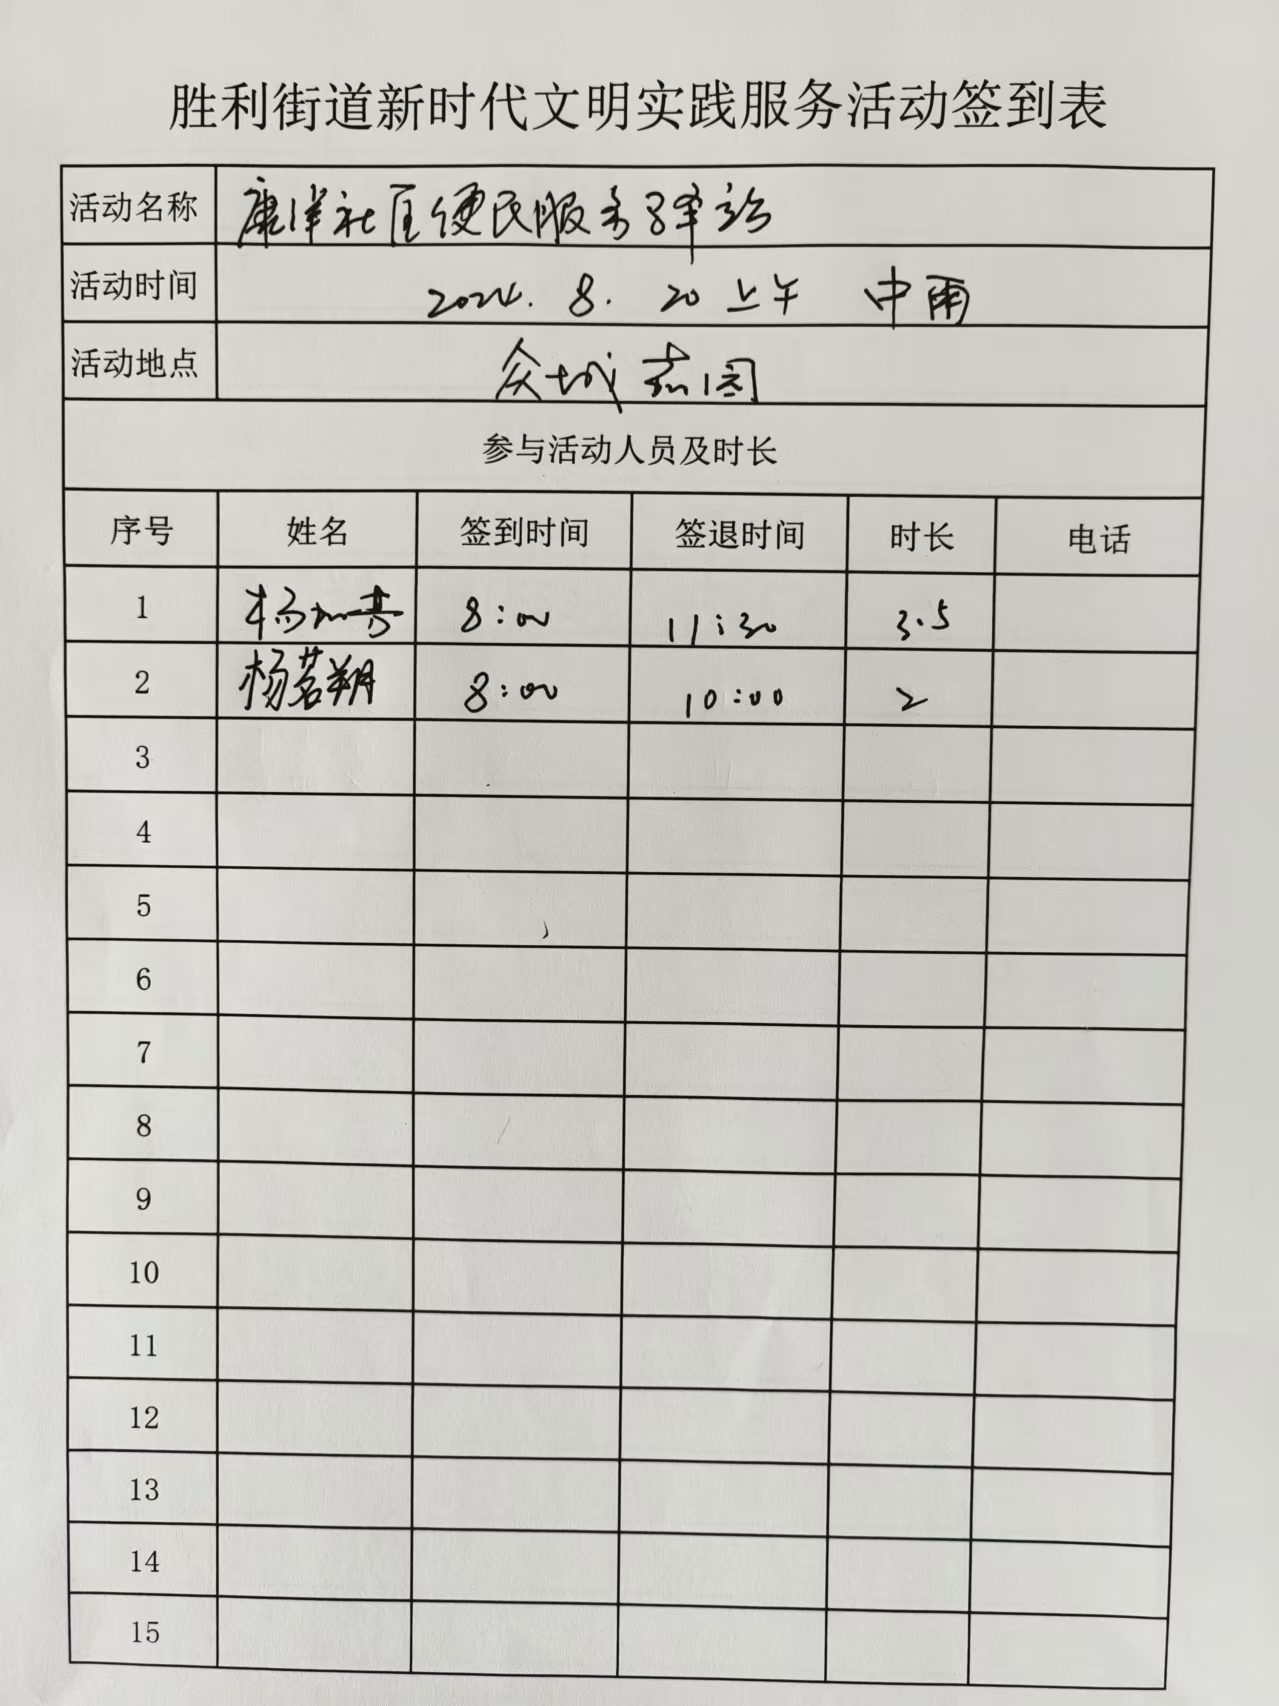 胜利街道新时代文明实践服务活动签到表
活动名称 康洋社区便民服务驿站
活动时间 2024. 8. 20 上午 中雨
活动地点 众城嘉园
参与活动人员及时长
序号 姓名 签到时间 签退时间 时长 电话
1 杨 8:00 11:30 3.5
2 杨茗翔 8:00 10:00 2
3
4
5
6
7
8
9
10
11
12
13
14
15